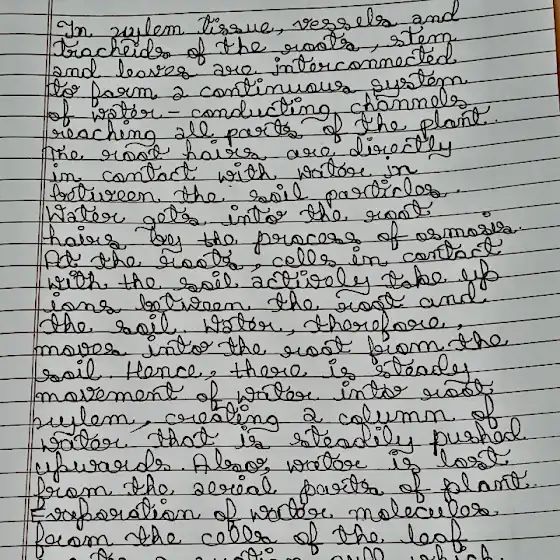 In xylem tissue, vessels and
tracheids of the roots, stem
and leaves are interconnected
to form a continuous system
of water-conducting channels
reaching all parts of the plant.
The root hairs are directly
in contact with water in
between the soil particles.
Water gets into the root
hairs by the process of osmosis.
At the roots, cells in contact
with the soil actively take up
ions between the root and
the soil. Water, therefore,
moves into the root from the
soil. Hence, there is steady
movement of water into root
xylem, creating a column of
water that is steadily pushed
upwards. Also, water is lost
from the aerial parts of plant.
Evaporation of water molecules
from the cells of the leaf
pull which